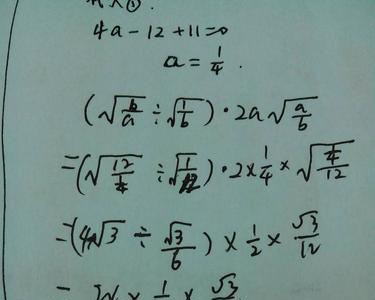 代入①.
4a - 12 + 11 = 0
a = 1/4 .
(√(b/a) ÷ √(1/b)) · 2a √(a/b)
= (√(12/(1/4)) ÷ √(1/12)) · 2 × 1/4 × √((1/4)/12)
= (4√3 ÷ √3/6) × 1/2 × √3/12
= 24 × 1/2 × √3